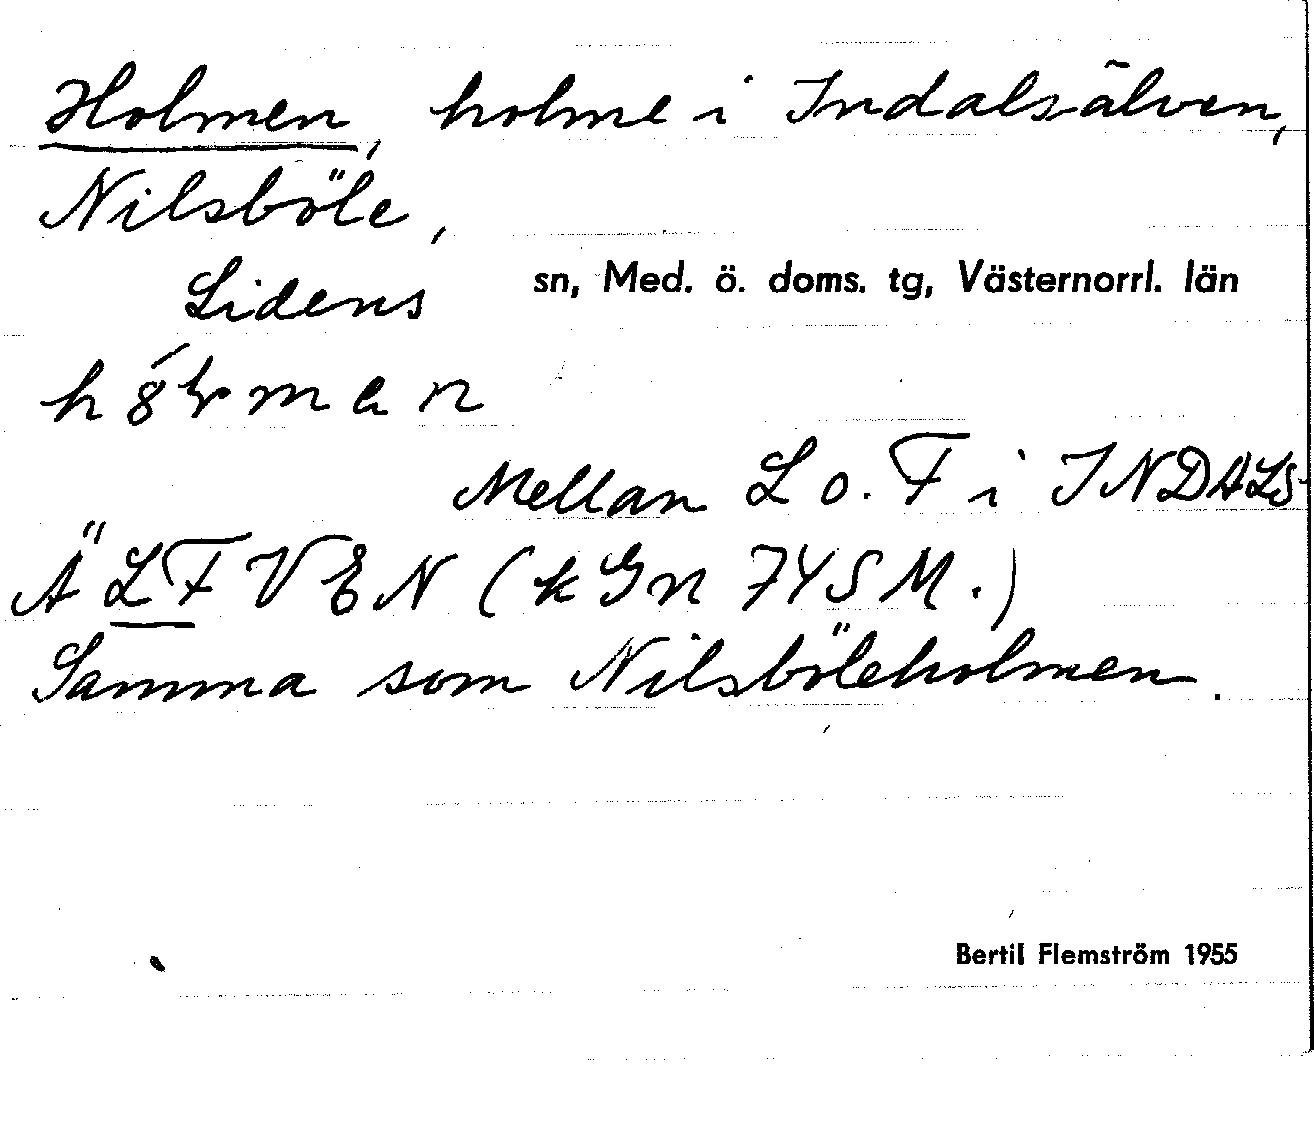 Holmen, holme i Indalsälven,
Nilsböle,
Lidens sn, Med. ö. doms. tg, Västernorrl. län
Mellan L o. F i INDALS-
ÄLFVEN (k Gn 74SM.)
Samma som Nilsböleholmen.
Bertil Flemström 1955